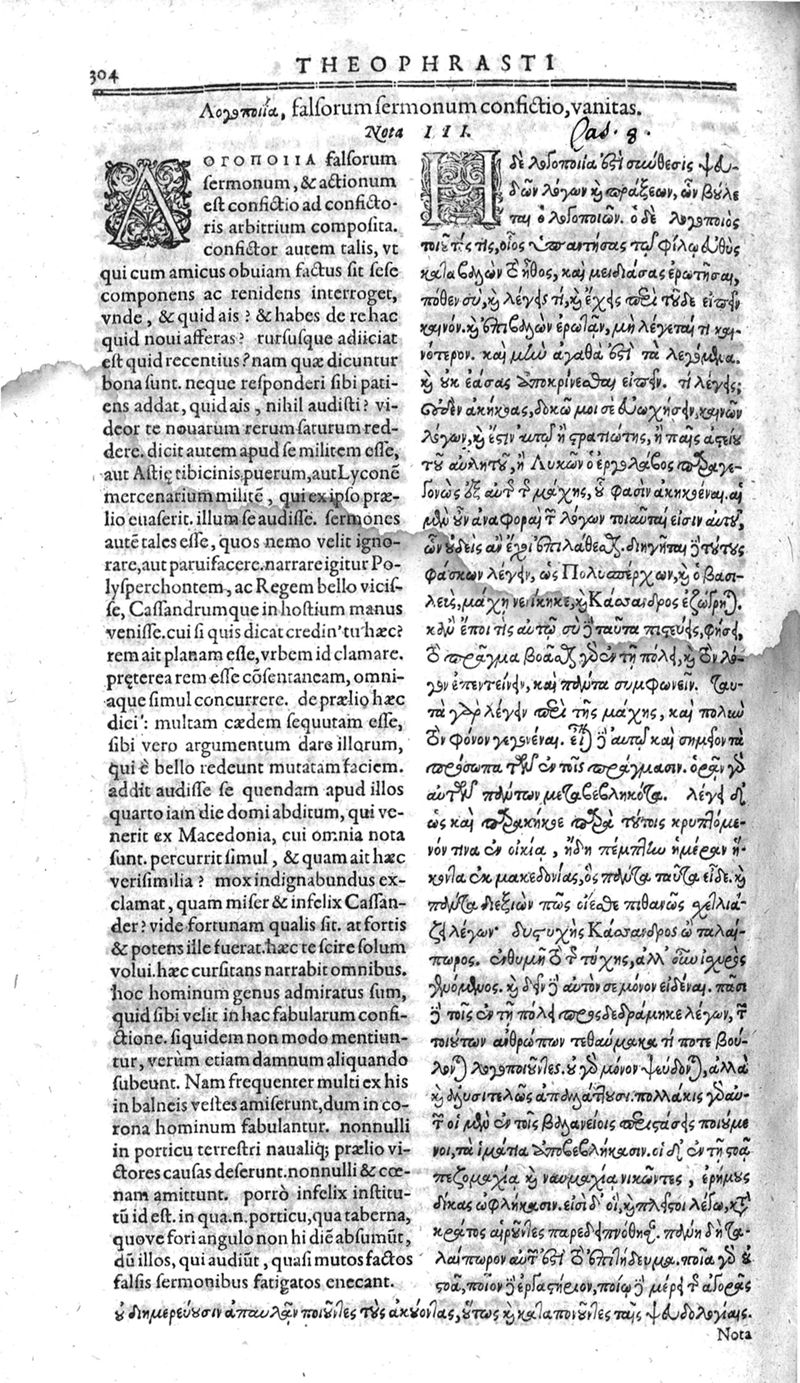 304
THEOPHRASTI
Λογοποιΐα, falsorum sermonum confictio, vanitas.
Nota III.
Cap. 8.
ΛΟΓΟΠΟΙΙΑ falsorum
sermonum, & actionum
est confictio ad conficto-
ris arbitrium composita.
confictor autem talis, vt
qui cum amicus obuiam factus sit sese
componens ac renidens interroget,
vnde, & quid ais? & habes de re hac
quid noui afferas? rursusque adiiciat
est quid recentius? nam quæ dicuntur
bona sunt. neque responderi sibi pati-
ens addat, quid ais, nihil audisti? vi-
deor te nouarum rerum saturum red-
dere. dicit autem apud se militem esse,
aut Astię tibicinis puerum, aut Lyconē
mercenarium militē, qui ex ipso præ-
lio euaserit. illum se audisse. sermones
autē tales esse, quos nemo velit igno-
rare, aut parui facere. narrare igitur Po-
lysperchontem, ac Regem bello vicis-
se, Cassandrumque in hostium manus
venisse. cui si quis dicat credin' tu hæc?
rem ait planam esse, vrbem id clamare.
pręterea rem esse cōsentaneam, omni-
aque simul concurrere. de prælio hæc
dici: multam cædem sequutam esse,
sibi vero argumentum dare illorum,
qui è bello redeunt mutatam faciem.
addit audisse se quendam apud illos
quarto iam die domi abditum, qui ve-
nerit ex Macedonia, cui omnia nota
sunt. percurrit simul, & quam ait hæc
verisimilia? mox indignabundus ex-
clamat, quam miser & infelix Cassan-
der? vide fortunam qualis sit. at fortis
& potens ille fuerat. hæc te scire solum
volui. hæc cursitans narrabit omnibus.
hoc hominum genus admiratus sum,
quid sibi velit in hac fabularum confi-
ctione. siquidem non modo mentiun-
tur, verùm etiam damnum aliquando
subeunt. Nam frequenter multi ex his
in balneis vestes amiserunt, dum in co-
rona hominum fabulantur. nonnulli
in porticu terrestri naualiq; prælio vi-
ctores causas deserunt. nonnulli & cœ-
nam amittunt. porrò infelix institu-
tū id est. in qua.n. porticu, qua taberna,
quove fori angulo non hi diē absumūt,
dū illos, qui audiūt, quasi mutos factos
falsis sermonibus fatigatos enecant.
Ἡ δὲ λογοποιία ἐστὶ σύνθεσις ψευ-
δῶν λόγων καὶ πράξεων, ὧν βούλε
ται ὁ λογοποιῶν. ὁ δὲ λογοποιὸς
τοιοῦτός τις, οἷος ὑπαντήσας τῷ φίλῳ εὐθὺς
καταβαλὼν τὸ ἦθος, καὶ μειδιάσας ἐρωτῆσαι,
πόθεν σὺ, καὶ λέγεις τί, καὶ ἔχεις περὶ τοῦδε εἰπεῖν
καινόν. καὶ ἐπιβαλὼν ἐρωτᾶν, μὴ λέγεταί τι και-
νότερον. καὶ μὴν ἀγαθά ἐστι τὰ λεγόμενα.
καὶ οὐκ ἐάσας ἀποκρίνεσθαι εἰπεῖν. τί λέγεις;
οὐδὲν ἀκήκοας, δοκῶ μοι σε εὐωχήσειν καινῶν
λόγων, καὶ ἔστιν αὐτῷ ἢ στρατιώτης, ἢ παῖς ἀστείου
τοῦ αὐλητοῦ, ἢ Λυκῶν ὁ ἐργολάβος παραγε-
γονὼς ἐξ αὐτῆς τῆς μάχης, οὗ φασὶν ἀκηκοέναι. αἱ
μὲν οὖν ἀναφοραὶ τῶν λόγων τοιαῦταί εἰσιν αὐτοῦ,
ὧν οὐδεὶς ἂν ἔχοι ἐπιλαβέσθαι. διηγεῖται δὲ τούτους
φάσκων λέγειν, ὡς Πολυσπέρχων, καὶ ὁ βασι-
λεὺς, μάχῃ νενίκηκε, καὶ Κάσσανδρος ἐζώγρηται.
κἂν εἴποι τὶς αὐτῷ σὺ δὲ ταῦτα πιστεύεις, φήσει,
τὸ πρᾶγμα βοᾶσθαι γὰρ ἐν τῇ πόλει, καὶ τὸν λό-
γον ἐπεντείνειν, καὶ πάντα συμφωνεῖν. ταυ-
τὰ γὰρ λέγειν περὶ τῆς μάχης, καὶ πολὺν
τὸν φόνον γεγονέναι. εἶναι δὲ αὐτῷ καὶ σημεῖον τὰ
πρόσωπα τῶν ἐν τοῖς πράγμασιν. ὁρᾶν γὰρ
αὐτῶν πάντων μεταβεβληκότα. λέγει δὲ
ὡς καὶ παρακήκοε παρὰ τούτοις κρυπτόμε-
νόν τινα ἐν οἰκίᾳ, ἤδη πέμπτην ἡμέραν ἥ-
κοντα ἐκ μακεδονίας, ὃς πάντα ταῦτα εἶδε. καὶ
πάντα διεξιὼν πῶς οἴεσθε πιθανῶς σχετλιά-
ζει λέγων· δυστυχὴς Κάσσανδρος ὢ ταλαί-
πωρος. ἐνθυμῇ τὸ τῆς τύχης, ἀλλ' οὖν ἰσχυρὸς
γενόμενος. καὶ δεῖν δὲ αὐτὸν σε μόνον εἰδέναι. πᾶσι
δὲ τοῖς ἐν τῇ πόλει προσδεδράμηκε λέγων, τῶν
τοιούτων ἀνθρώπων τεθαύμακα τί ποτε βού-
λονται λογοποιοῦντες. οὐ γὰρ μόνον ψεύδονται, ἀλλὰ
καὶ ἀλυσιτελῶς ἀπαλλάττουσι. πολλάκις γὰρ αὐ-
τῶν οἱ μὲν ἐν τοῖς βαλανείοις περιστάσεις ποιούμε
νοι, τὰ ἱμάτια ἀποβεβλήκασιν. οἱ δὲ ἐν τῇ στοᾷ
πεζομαχίᾳ καὶ ναυμαχίᾳ νικῶντες, ἐρήμους
δίκας ὠφλήκασιν. εἰσὶ δ' οἳ, καὶ πλείστοι λέγω, κατὰ
κράτος αἱροῦντες παρεδειπνήθησαν. πάνυ δὴ τα-
λαίπωρον αὐτῶν ἐστὶ τὸ ἐπιτήδευμα. ποίᾳ γὰρ ἐν
στοᾷ, ποῖον δὲ ἐργαστήριον, ποίῳ δὲ μέρει τῆς ἀγορᾶς
οὐ διημερεύουσιν ἀπαυδᾶν ποιοῦντες τοὺς ἀκούοντας, οὕτως καὶ καταπονοῦντες ταῖς ψευδολογίαις.
Nota